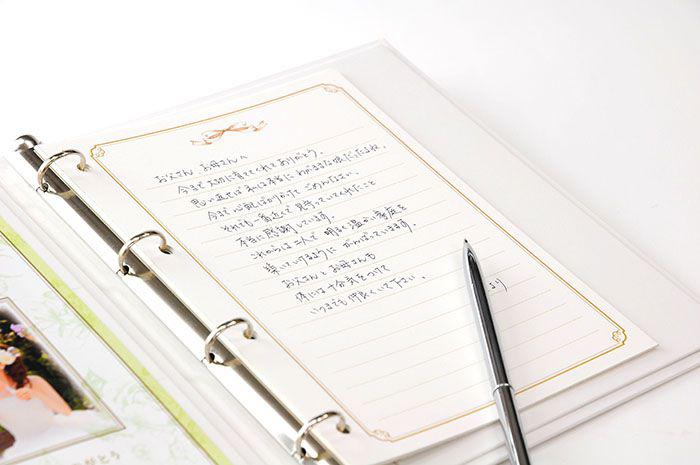 お父さん、お母さんへ
今まで大切に育ててくれてありがとう。
思い返せば私は本当にわがままな娘だったよね。
今まで心配ばかりかけて ごめんなさい。
それでも、笑顔で見守っていてくれたこと
本当に感謝しています。
これからは二人で 明るく温かい家庭を
築いていけるように がんばっていきます。
お父さんとお母さんも
体には十分気をつけて
いつまでも仲良くいて下さい。
より
がとう